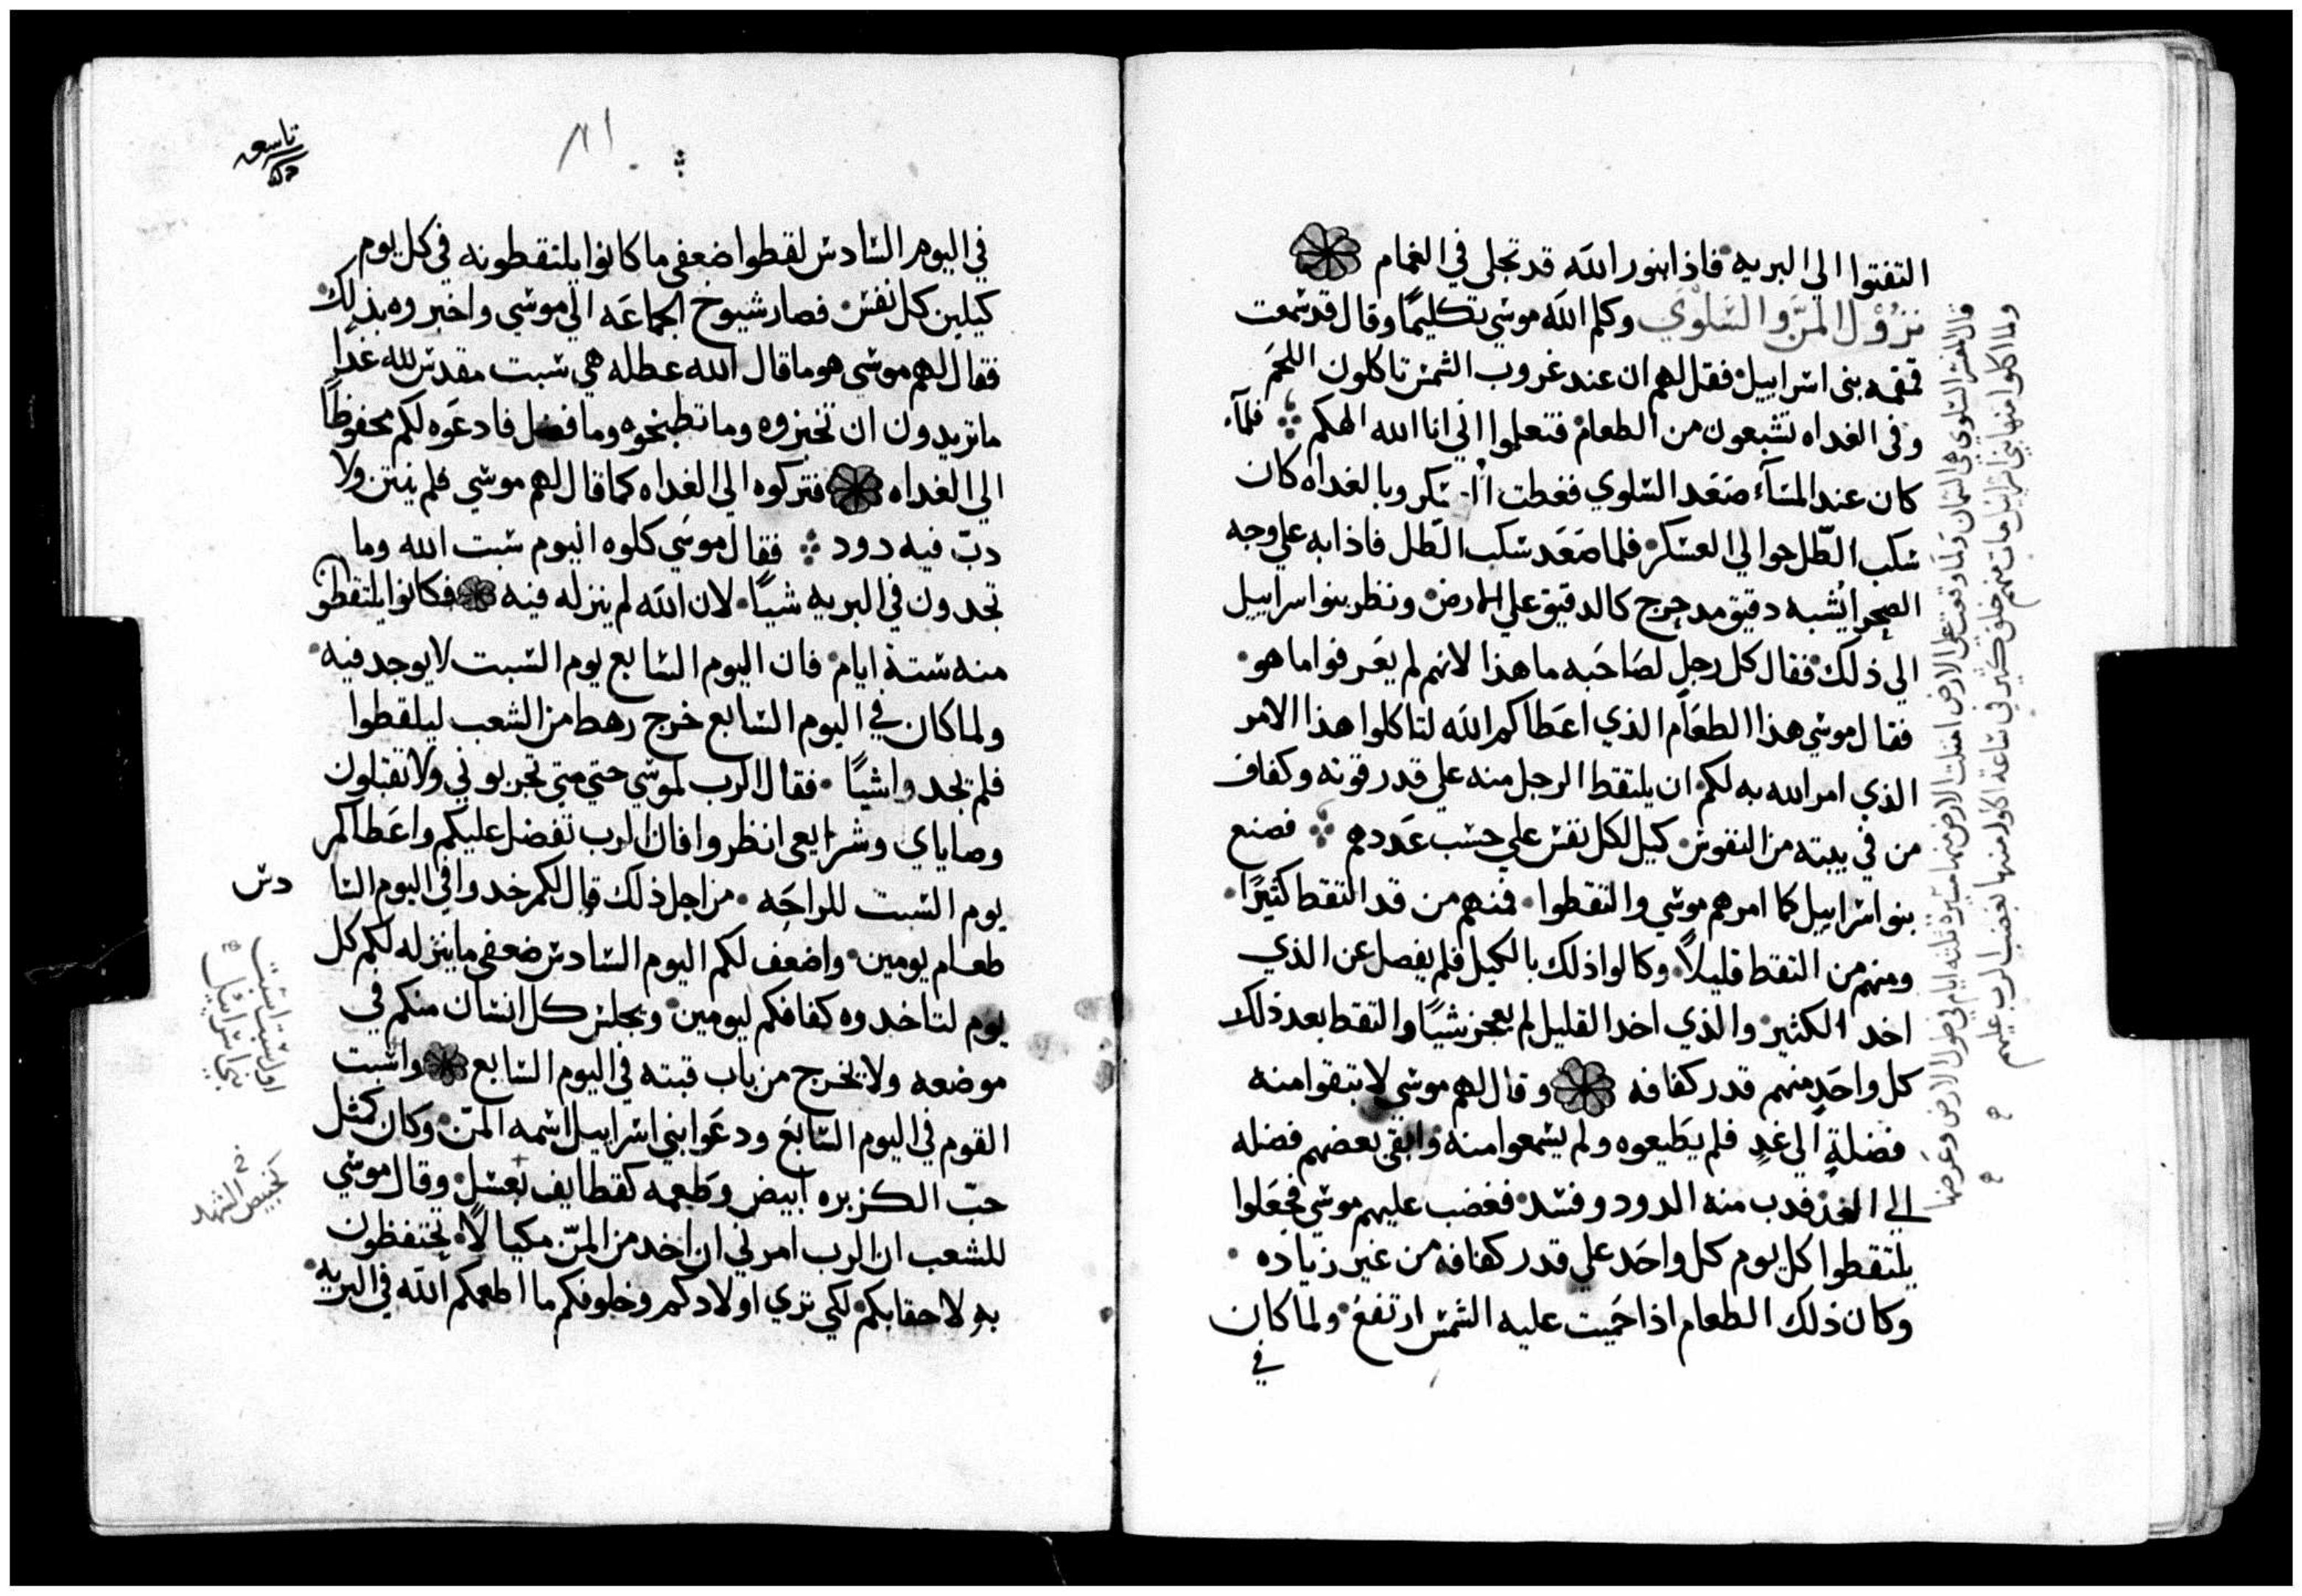 التفتوا الي البريه فاذا بنور الله قد تجلي في الغمام
نزول المن والسلوي وكلم الله موسي تكليمًا وقال قد سمعت
قمقمه بني اسراييل فقل لهم ان عند غروب الشمس تاكلون اللحم
وفي الغداه تشبعون من الطعام فتعلموا اني انا الله الهكم فلمآ
كان عند المسآء صعد السلوي فغطت العسكر وبالغداه كان
سكب الطل حوالي العسكر فلما صعد سكب الطل فاذا به علي وجه
الصحرا يشبه دقيق مدحرج كالدقيق علي الارض ونظر بنوا سراييل
الي ذلك فقال كل رجل لصاحبه ما هذا لانهم لم يعرفوا ما هو
فقال موسي هذا الطعام الذي اعطاكم الله لتاكلوا هذا الامر
الذي امر الله به لكم ان يلتقط الرجل منه علي قدر قوته وكفاف
من في بيته من النفوس كيل لكل نفس علي حسب عددهم فصنع
بنوا سراييل كما امرهم موسي والتقطوا فمنهم من قد التقط كثيرًا
ومنهم من التقط قليلاً وكالوا ذلك بالكيل فلم يفصل عن الذي
اخد الكثير والذي اخد القليل لم يعجز شيًا والتقط بعد ذلك
كل واحد منهم قدر كفافه وقال لهم موسي لا تبقوا منه
فضلة الي غد فلم يطيعوه ولم يسمعوا منه وابقي بعضهم فضله
الي الغد فدب منه الدود وفسد فغضب عليهم موسي فجعلوا
يلتقطوا كل يوم كل واحد علي قدر كفافه من غير زياده
وكان ذلك الطعام اذا حميت عليه الشمس ارتفع ولما كان
في
قال المفسر السلوي هي السمان ولما وقعت علي الارض امتلت الارض منها مسيرة تلته ايام في طول الارض وعرضها
ولما اكلوا منها بني اسراييل مات منهم خلق كثير في ساعة اكلهم منها لغضب الرب عليهم
تاسعه
٨١
في اليوم السادس لقطوا ضعفي ما كانوا يلتقطونه في كل يوم
كيلين كل نفس فصار شيوخ الجماعه الي موسي واخبروه بذلك
فقال لهم موسي هو ما قال الله عطله هي سبت مقدس لله غدا
ما تريدون ان تخبزوه وما تطبخوه وما فضل فادعوه لكم محفوظًا
الي الغداه فتركوه الي الغداه كما قال لهم موسي فلم ينتن ولا
دب فيه دود فقال موسي كلوه اليوم سبت الله وما
تجدون في البريه شيًا لان الله لم ينزله فيه فكانوا يلتقطون
منه ستة ايام فان اليوم السابع يوم السبت لا يوجد فيه
ولما كان في اليوم السابع خرج رهط من الشعب ليلقطوا
فلم يجدوا شيًا فقال الرب لموسي حتي متي تجربوني ولا تقبلون
وصاياي وشرايعي انظروا فان الرب تفضل عليكم واعطاكم
يوم السبت للراحه من اجل ذلك قال لكم خدوا في اليوم السا دس
طعام يومين واضعف لكم اليوم السادس ضعفي ما ينزله لكم كل
يوم لتاخدوه كفافكم ليومين ويجلس كل انسان منكم في
موضعه ولا يخرج من باب قبته في اليوم السابع واسبت
القوم في اليوم السابع ودعوا بني اسراييل اسمه المن وكان كمثل
حب الكزبره ابيض وطعمه كقطايف بعسل وقال موسي
للشعب ان الرب امرني ان اخد من المن مكيالاً يحتفظون
به لاحقابكم لكي تري اولادكم وخلوفكم ما اطعمكم الله في البريه
اول سبت اسبت
بني اسراييل
كخبيص الشهد